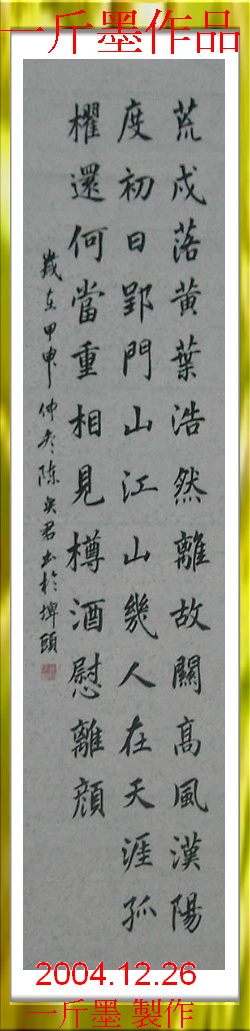 一斤墨作品
荒戍落黃葉浩然離故關高風漢陽
度初日郢門山江山幾人在天涯孤
櫂還何當重相見樽酒慰離顏
歲在甲申仲冬陳君书於埤頭
2004.12.26
一斤墨 製作